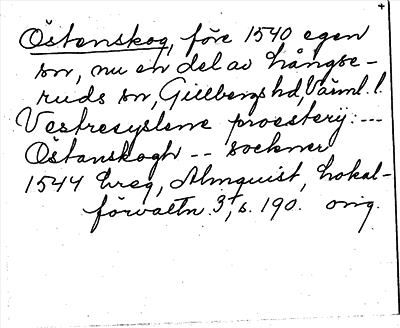 Östenskog, före 1540 egen
sn, nu en del av Långse-
ruds sn, Gillbergs hd, Värml. l.
Vestresyslene proesterij: ---
Östanskogh -- sockner
1544 breg, Almquist, Lokal-
förvaltn. 3, s. 190. orig.